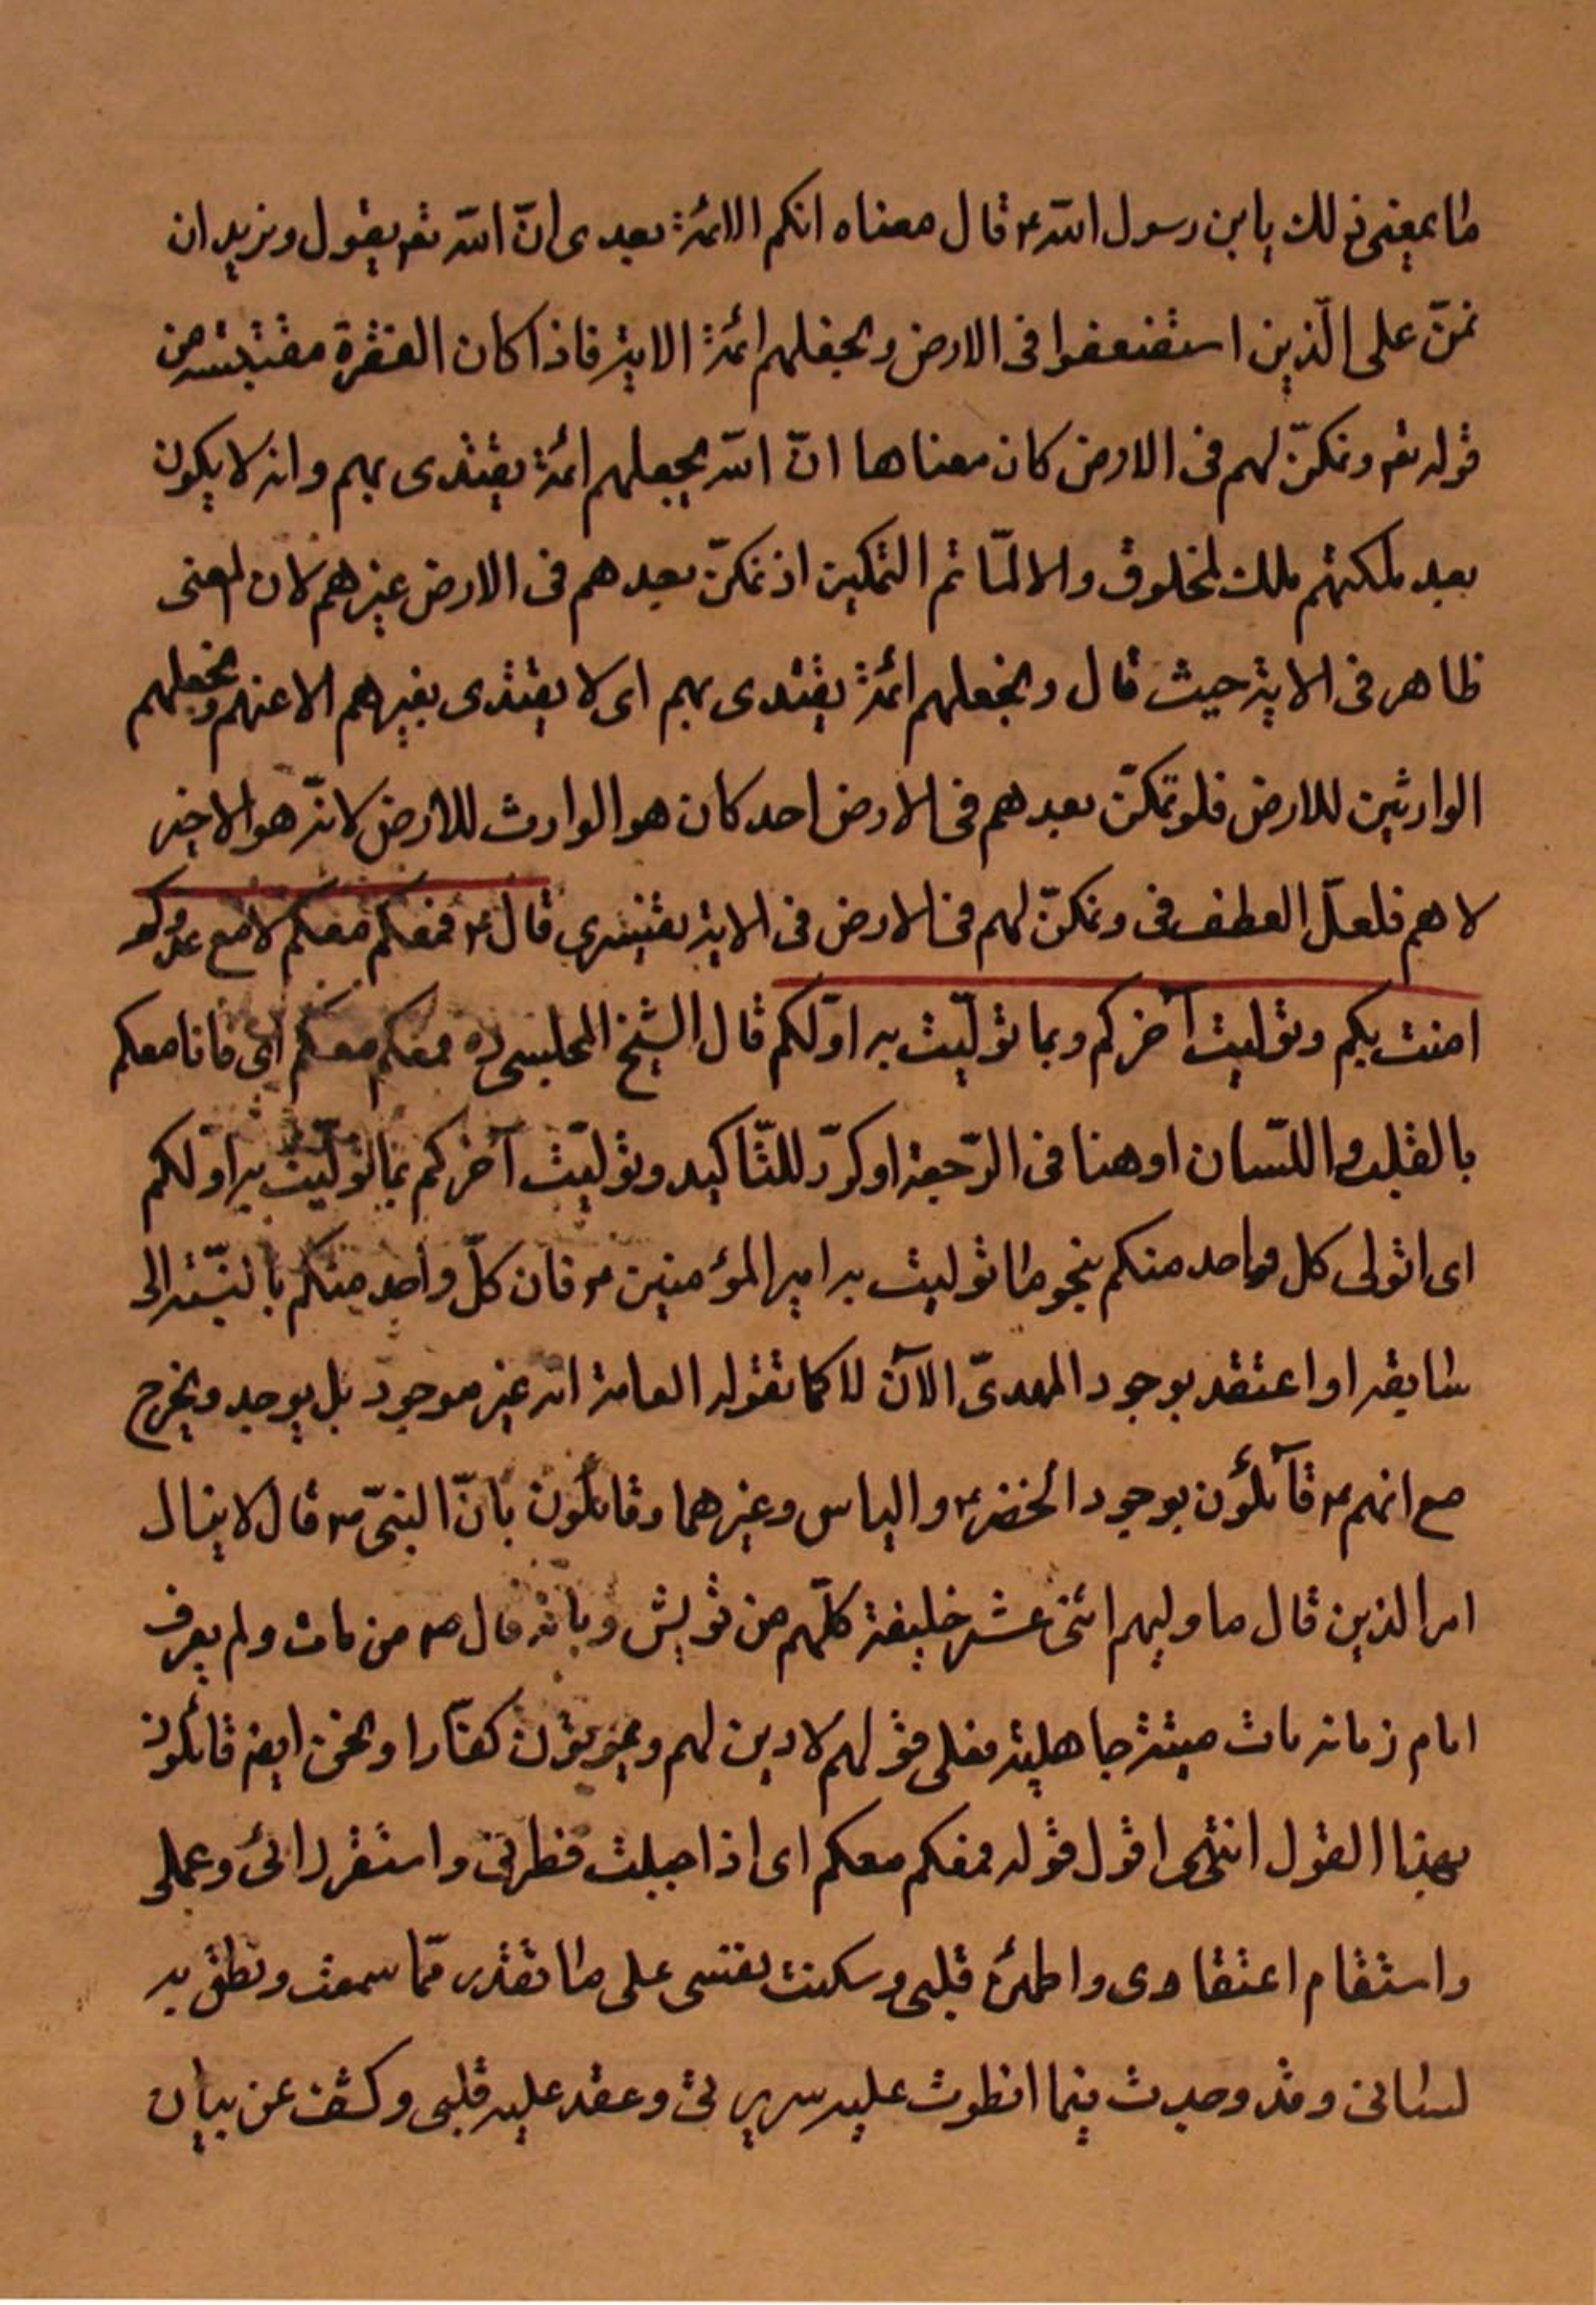 ما يعنى ذلك يا بن رسول الله ع قال معناه انكم الائمة بعدى انّ الله تع يقول و نريد ان
نمنّ على الّذين استضعفوا فى الارض و نجعلهم ائمة الاية فاذا كان الفقرة مقتبسة من
قوله تع و نمكنّ لهم فى الارض كان معناها انّ الله يجعلهم ائمة يقتدى بهم و انه لا يكون
بعد ملكتهم ملك لمخلوق و الا لمّا تم التمكين اذ نمكنّ بعدهم فى الارض غيرهم لان المعنى
ظاهر فى الاية حيث قال و نجعلهم ائمة يقتدى بهم اى لا يقتدى بغيرهم الا عنهم و نجعلهم
الوارثين للارض فلو تمكنّ بعدهم فى الارض احد كان هو الوارث للارض لانّه هو الاخير
لا هم فلعلّ العطف فى و نمكنّ لهم فى الارض فى الاية تفسيرى قال ع فمعكم معكم لا مع عدوكم
امنت بكم و توليت آخركم و بما تولّيت به اوّلكم قال الشيخ المجلسى ره فمعكم معكم اى فانا معكم
بالقلب و اللّسان او هنا فى الرّجعة او كرّر للتّاكيد و تولّيت آخركم بما تولّيت به اوّلكم
اى اتولى كل واحد منكم بنحو ما توليت به امير المؤمنين ع فان كلّ واحد منكم بالنّسبة الى
سابقه او اعتقد بوجود المهدىّ الآن لا كما تقوله العامة انه غير موجود بل يوجد و يخرج
مع انهم ع قآئلؤن بوجود الخضر ع و الياس و غيرهما و قائلون بانّ النبىّ ص قال لا ينال
امر الذين قال ما وليهم اثنى عشر خليفة كلّهم من قريش و بانه قال ص من مات و لم يعرف
امام زمانه مات ميتة جاهلية فعلى قولهم لا دين لهم و يموتون كفّارا و نحن ايض قائلون
بهذا القول انتهى اقول قوله فمعكم معكم اى اذا جبلت فطرتى و استقر رائى و عملى
و استقام اعتقادى و اطمئن قلبى و سكنت نفسى على ما تقدر ممّا سمعت و نطق به
لسانى و قد وجدت فيما انطوت عليه سريرتى و عقد عليه قلبى و كشف عن بيان